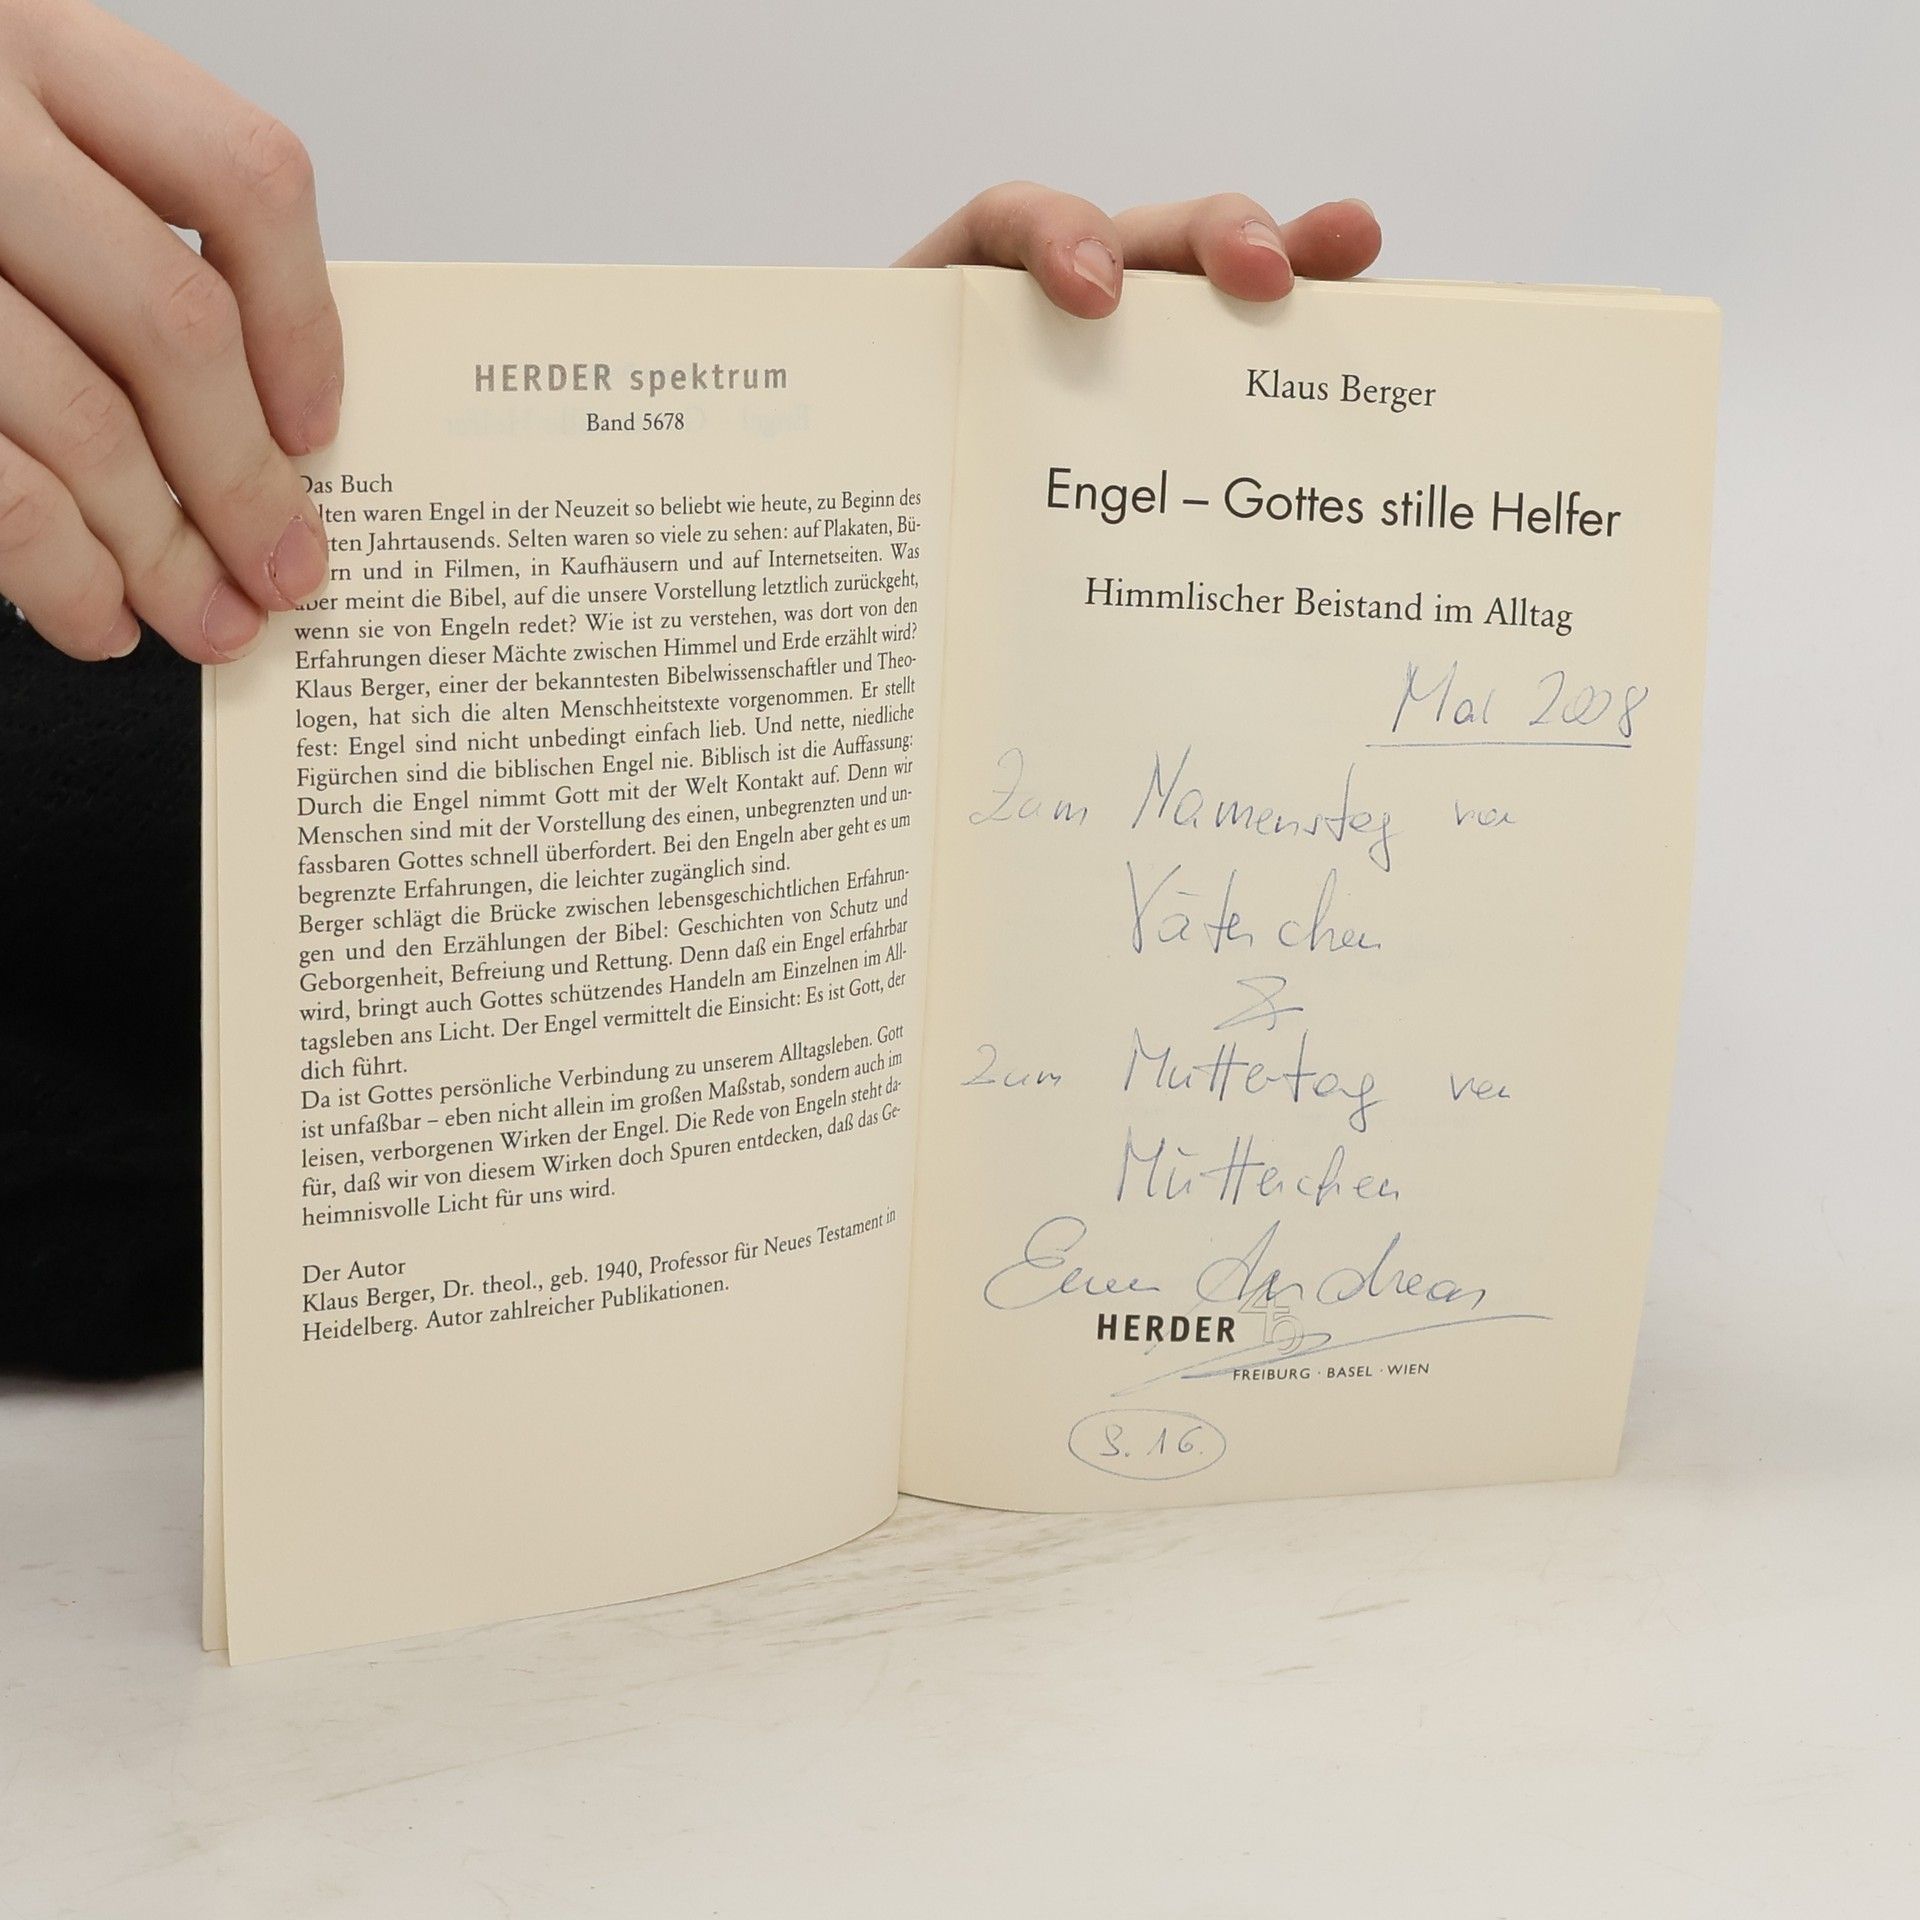 HERDER spektrum
Band 5678
Das Buch
lten waren Engel in der Neuzeit so beliebt wie heute, zu Beginn des
tten Jahrtausends. Selten waren so viele zu sehen: auf Plakaten, Bü-
rn und in Filmen, in Kaufhäusern und auf Internetseiten. Was
aber meint die Bibel, auf die unsere Vorstellung letztlich zurückgeht,
wenn sie von Engeln redet? Wie ist zu verstehen, was dort von den
Erfahrungen dieser Mächte zwischen Himmel und Erde erzählt wird?
Klaus Berger, einer der bekanntesten Bibelwissenschaftler und Theo-
logen, hat sich die alten Menschheitstexte vorgenommen. Er stellt
fest: Engel sind nicht unbedingt einfach lieb. Und nette, niedliche
Figürchen sind die biblischen Engel nie. Biblisch ist die Auffassung:
Durch die Engel nimmt Gott mit der Welt Kontakt auf. Denn wir
Menschen sind mit der Vorstellung des einen, unbegrenzten und un-
fassbaren Gottes schnell überfordert. Bei den Engeln aber geht es um
begrenzte Erfahrungen, die leichter zugänglich sind.
Berger schlägt die Brücke zwischen lebensgeschichtlichen Erfahrun-
gen und den Erzählungen der Bibel: Geschichten von Schutz und
Geborgenheit, Befreiung und Rettung. Denn daß ein Engel erfahrbar
wird, bringt auch Gottes schützendes Handeln am Einzelnen im All-
tagsleben ans Licht. Der Engel vermittelt die Einsicht: Es ist Gott, der
dich führt.
Da ist Gottes persönliche Verbindung zu unserem Alltagsleben. Gott
ist unfaßbar – eben nicht allein im großen Maßstab, sondern auch im
leisen, verborgenen Wirken der Engel. Die Rede von Engeln steht da-
für, daß wir von diesem Wirken doch Spuren entdecken, daß das Ge-
heimnisvolle Licht für uns wird.
Der Autor
Klaus Berger, Dr. theol., geb. 1940, Professor für Neues Testament in
Heidelberg. Autor zahlreicher Publikationen.
Klaus Berger
Engel – Gottes stille Helfer
Himmlischer Beistand im Alltag
Mai 2008
Zum Namenstag von
Väterchen
&
Zum Muttertag von
Mütterchen
Euer Andreas
HERDER
FREIBURG · BASEL · WIEN
S. 16.